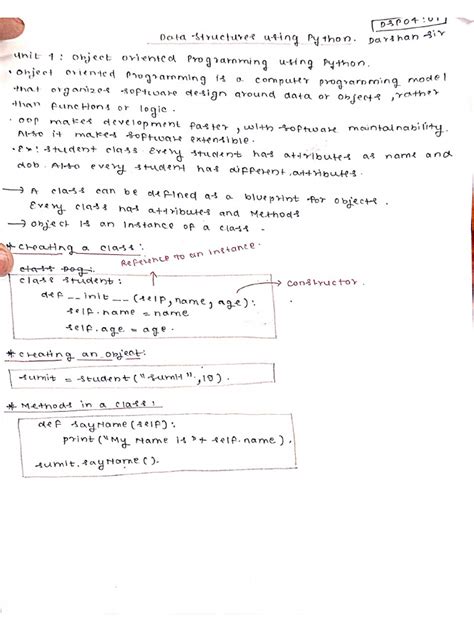 DSP04:U1
Data Structures using Python. Darshan Sir
Unit 1: Object Oriented Programming using Python.
• Object oriented Programming is a computer programming model
that organizes software design around data or objects, rather
than functions or logic.
• OOP makes development faster, with software maintainability.
Also it makes software extensible.
• Ex: Student class. Every student has attributes as name and
dob. Also every student has different attributes.
→ A class can be defined as a blueprint for objects.
Every class has attributes and Methods
→ object is an instance of a class.
* Creating a class:
Reference to an instance.
class Dog:
class Student:
def __init__(self, name, age):
→ constructor.
self.name = name
self.age = age.
* Creating an object:
sumit = Student("sumit", 19).
* Methods in a class:
def sayName(self):
print("My Name is "+ self.name).
sumit.sayName().